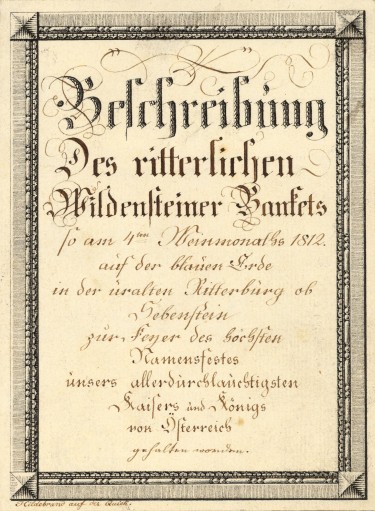 Beschreibung
Des ritterlichen
Wildensteiner Bankets
so am 4ten Weinmonaths 1812.
auf der blauen Erde
in der uralten Ritterburg ob
Sebenstein
zur Feyer des höchsten
Namensfestes
unsers allerdurchlauchtigsten
Kaisers und Königs
von Österreich
gehalten worden.
Hildebrand auf der